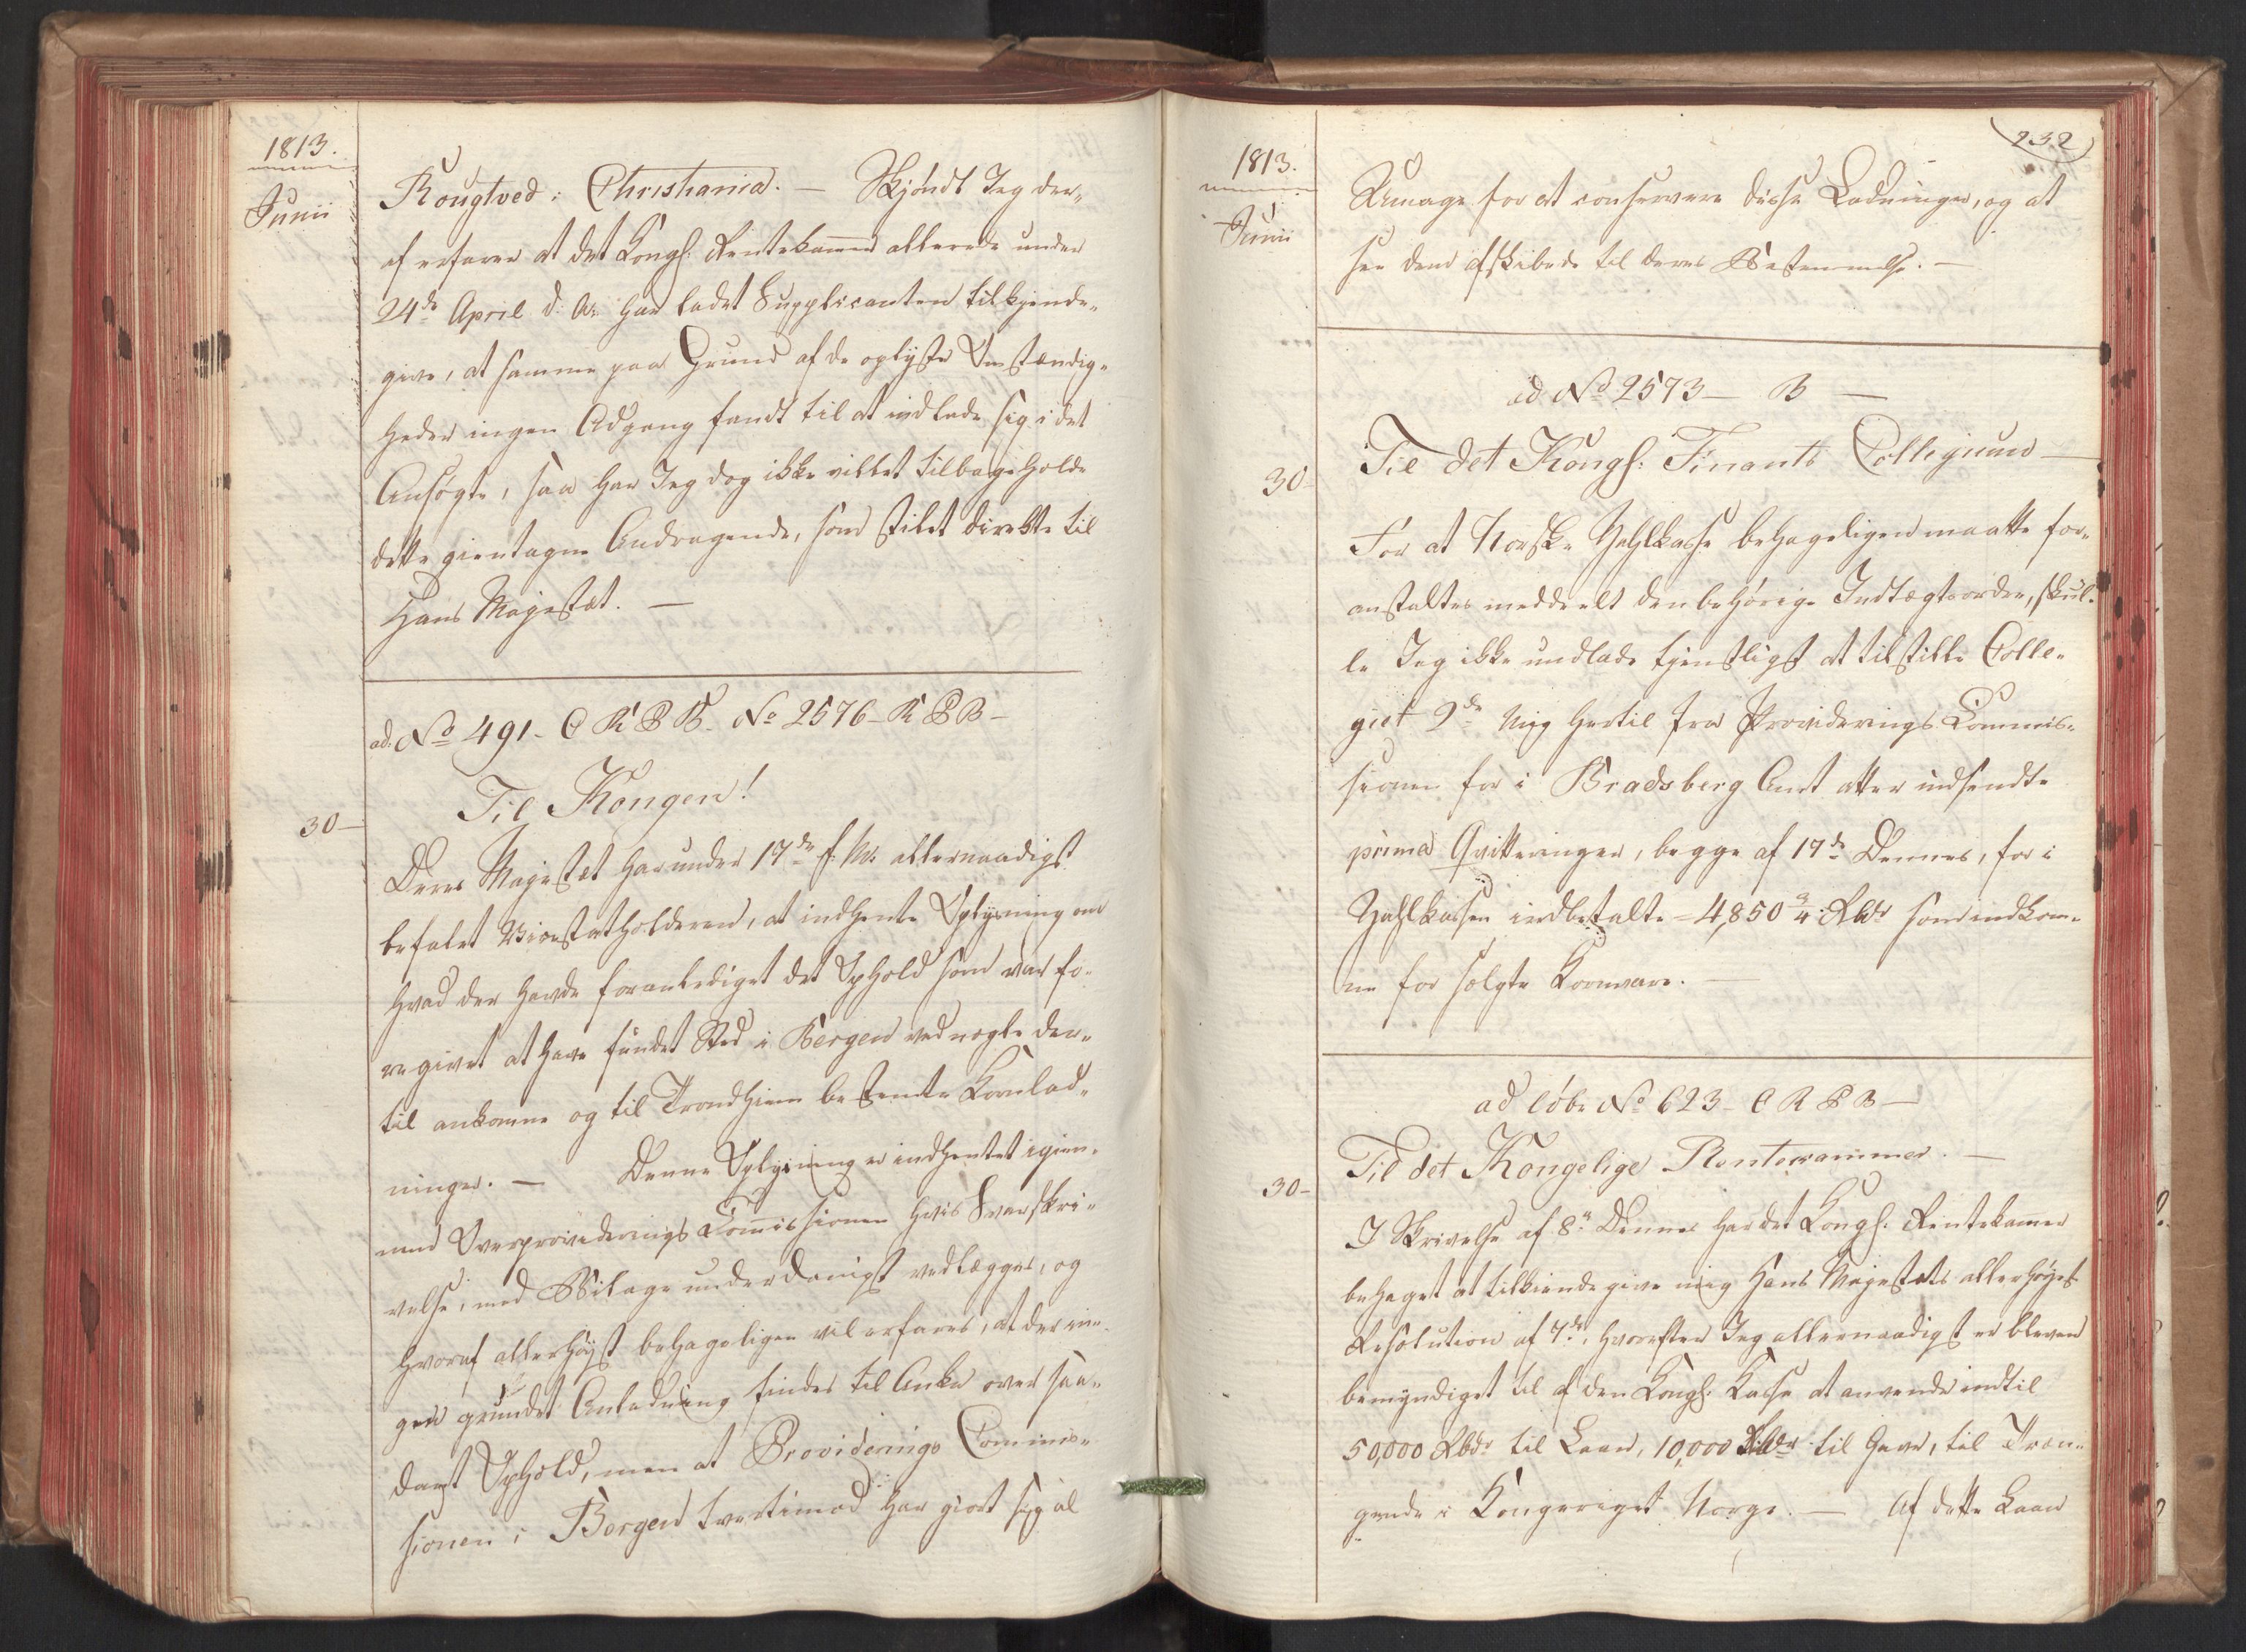 1813.
Junii
Rougtved i Christiania. — Skjøndt Jeg der-
af erfarer at det Kongl: Rentekam̅er allerede under
24de April d: A: har ladet Supplicanten tilkjende-
give, at samme paa Grund af de oplyste Omstændig-
heder ingen Adgang fandt til at indlade sig i det
Ansøgte, saa har Jeg dog ikke villet tilbageholde
dette gientagne Andragende, som stilet directe til
Hans Majestæt. —
ad. No 491. C R P B. No 2576 - R P B -
Til Kongen!
30 -
Deres Majestet har under 17de f: M: allernaadigst
befalet Vicestatholderen, at indhente Oplysning om
hvad der havde foranlediget det Ophold som var fo-
regivet at have fundet Sted i Bergen ved nogle der-
til ankomne og til Trondhiem bestemte Kornlad-
ninger. — Denne Oplysning er indhentet igien-
nem Overproviderings Com̅issionen hvis Svarskri-
velse, med Bilage underdanigst vedlægges, og
hvoraf allerhøyst behageligen vil erfares, at der in-
gen grundet Anledning findes til Anke over saa-
dant Ophold, men at Providerings Commis-
sionen i Bergen tvertimod har giort sig al
232
1813.
Junii
Umage for at conservere disse Ladninger, og at
see dem afskibede til deres Bestemmelse. —
ad No 2573 - B —
Til det Kongl: Finants Collegium —
30 -
For at Norske Zahlkasse behageligen maatte for-
anstaltes meddeelt den behørige Indtægtsorder, skul-
le Jeg ikke undlade tjenstligst at tilstille Colle-
giet 2de mig hertil fra Providerings Commis-
sionen for i Bradsberg Amt atter indsendte
prima Qvitteringer, begge af 17de Dennes, for i
Zahlkassen indbetalte = 4,850 3/4 Rbdr som indkom-
ne for solgte Kornvare. —
ad løbe No 623 - C R P B —
Til det Kongelige Rentekammer. —
30 -
I Skrivelse af 8de Dennes har det Kongl: Rentekam̅er
behaget at tilkiendegive mig Hans Majestæts allerhøyest
Resolution af 7de, hvorefter Jeg allernaadigst er bleven
bemyndiget til af den Kongl: Kasse at anvende indtil
50,000 Rbdr til Laan, 10,000 Rbdr til Gave, til Træn-
gende i Kongeriget Norge. — Af dette Laan